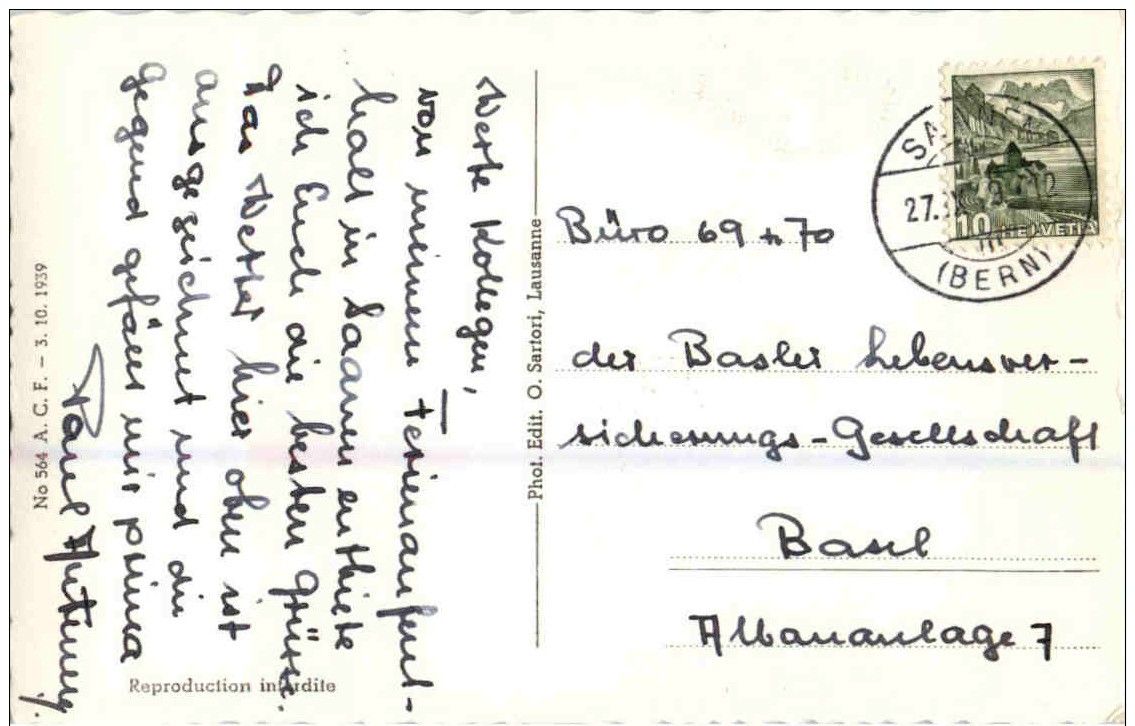 Werte Kollegen,
von meinem Ferienaufent-
halt in Saanen entbiete
ich Euch die besten Grüsse.
Das Wetter hier oben ist
ausgezeichnet und die
Gegend gefällt mir prima
Paul
No 564 A. C. F. – 3. 10. 1939
Reproduction interdite
Phot. Edit. O. Sartori, Lausanne
10 HELVETIA
27.
(BERN)
Büro 69 + 70
der Basler Lebensver-
sicherungs-Gesellschaft
Basel
Albananlage 7